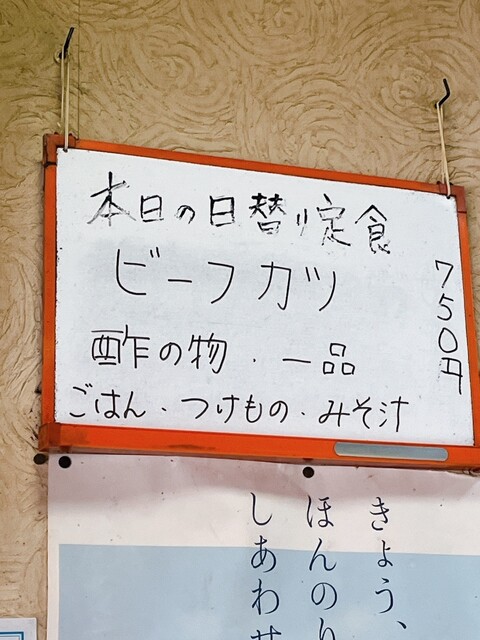 本日の日替り定食
ビーフカツ
750円
酢の物・一品
ごはん・つけもの・みそ汁
きょう、
ほんのり
しあわせ